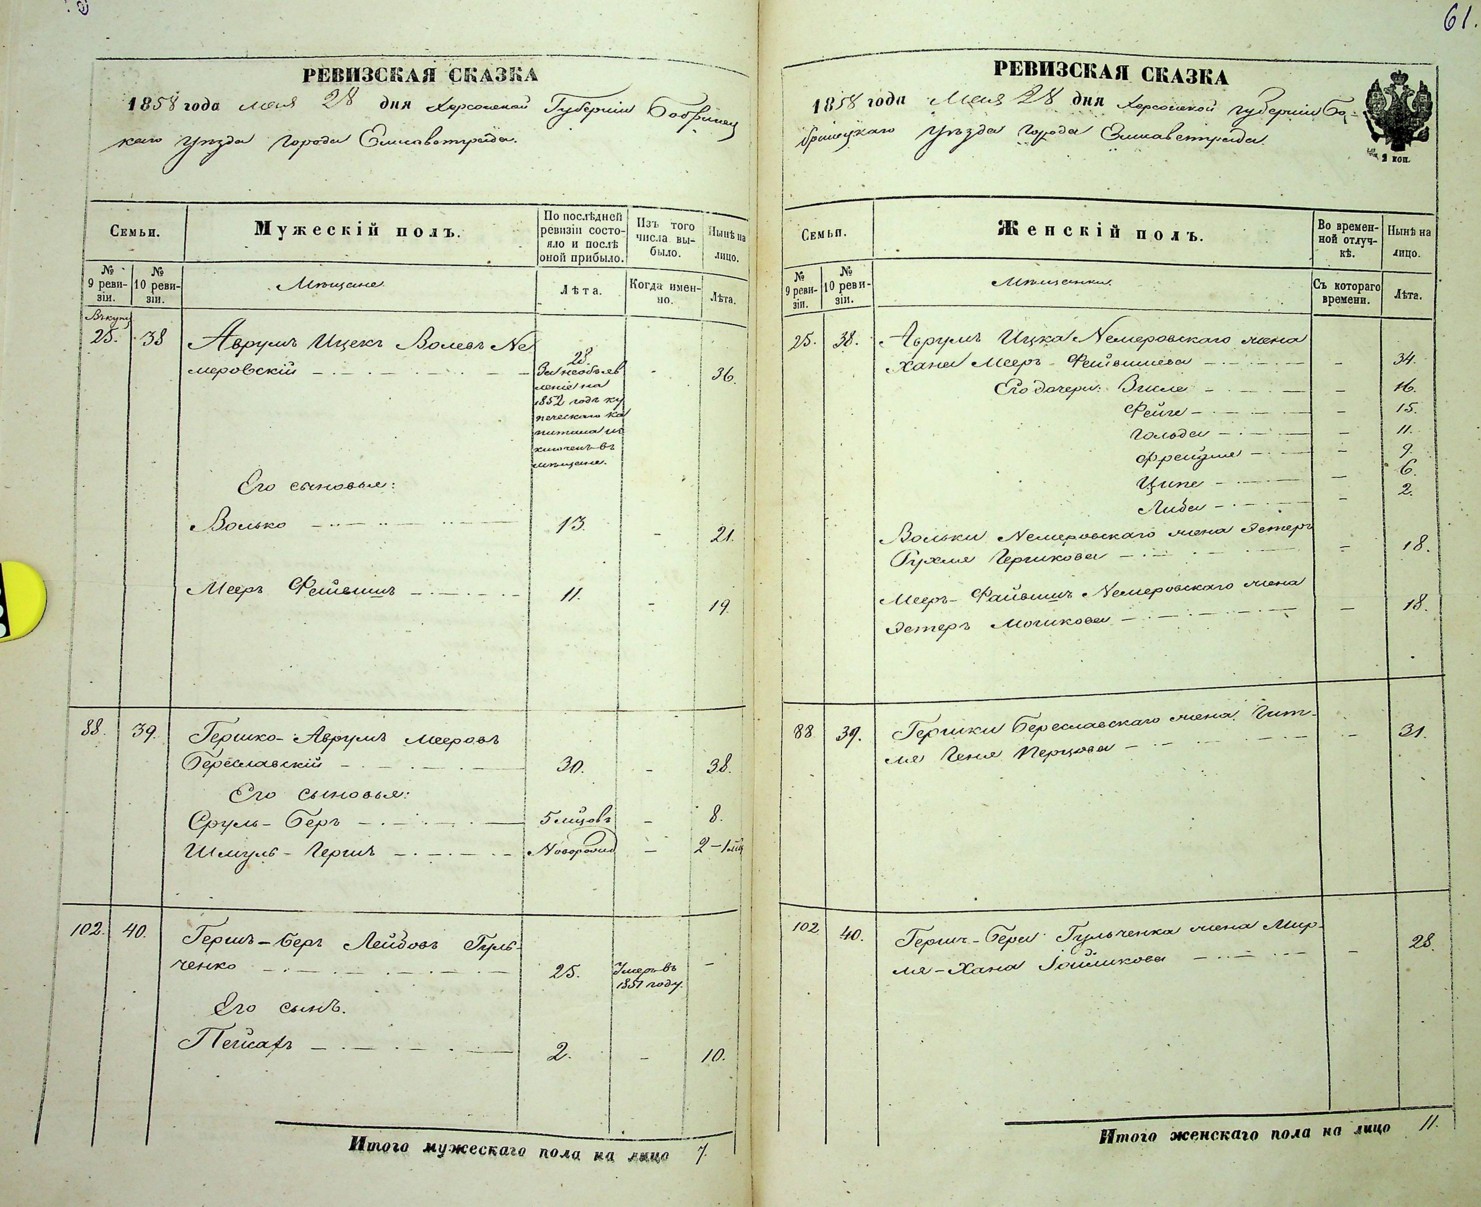 61.
РЕВИЗСКАЯ СКАЗКА
1858 года мая 28 дня Херсонской Губерніи Бобринец
каго уѣзда города Елисаветграда.
Семьи.
Мужескій полъ.
По послѣдней ревизіи состояло и послѣ оной прибыло.
Изъ того числа выбыло.
Нынѣ на лицо.
№ 9 ревизіи.
№ 10 ревизіи.
Мѣщане
Лѣта.
Когда именно.
Лѣта.
Въ купц
25. 38 Аврумъ Ицекъ Волевъ Не
меровскій 28. 36.
За необъяв
леніе на
1852 годъ ку
печескаго ка
питала ис
ключенъ въ
мѣщане.
Его сыновья:
Волько 13. 21.
Мееръ Фейвишъ 11. 19.
88. 39. Гершко-Аврумъ Мееровъ
Береславскій 30. 38.
Его сыновья:
Сруль-Беръ 5 мѣцовъ 8.
Шмуль-Гершъ Новорожд 2-1 мѣ
102. 40. Гершъ-Беръ Лейбовъ Гуль-
ченко 25. Умеръ въ 1851 году.
Его сынъ.
Пейсахъ 2. 10.
Итого мужескаго пола на лицо 7.
РЕВИЗСКАЯ СКАЗКА
1858 года Мая 28 дня Херсонской губерніи Бо-
бринецкаго уѣзда города Елисаветграда.
2 коп.
Семьи.
Женскій полъ.
Во временной отлучкѣ.
Нынѣ на лицо.
№ 9 ревизіи.
№ 10 ревизіи.
Мѣщанки
Съ котораго времени.
Лѣта.
25. 38. Аврумъ Ицка Немеровскаго жена
Хана Мееръ-Фейвишева 34.
Его дочери: Висле 16.
Фейге 15.
Гольда 11.
Фрейдме 9.
Ципе 6.
Либа 2.
Вольки Немеровскаго жена Эстеръ
Рухля Гершкова 18.
Мееръ-Файвишъ Немеровскаго жена
Эстеръ Мошкова 18.
88 39. Гершки Береславскаго жена Гит-
ля Геня Перцова 31.
102 40. Гершъ-Бера Гульченка жена Мир-
ля-Хана Іойликова 28.
Итого женскаго пола на лицо 11.